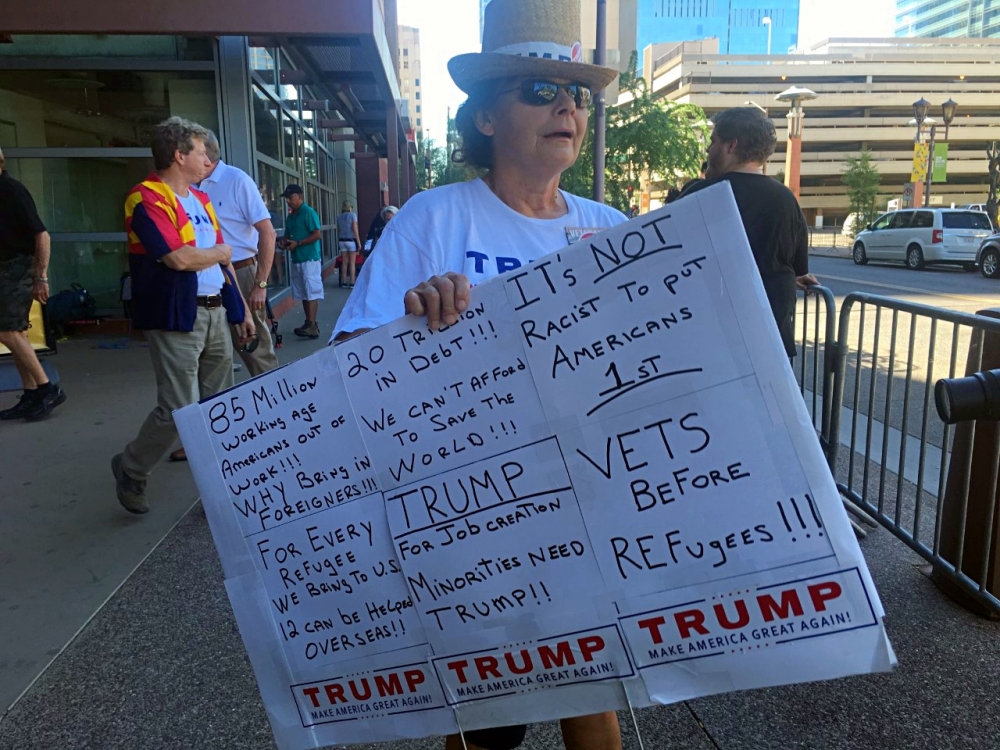 85 Million
Working Age
Americans out of
Work!!!
Why Bring in
Foreigners!!!
For Every
Refugee
We Bring to U.S.
12 can be Helped
Overseas!!
20 Trillion
in Debt!!!
We can't afford
to save the
World!!!
TRUMP
For Job creation
Minorities need
Trump!!
It's NOT
Racist to put
Americans
1st
Vets
Before
Refugees!!!
TRUMP
MAKE AMERICA GREAT AGAIN!
TRUMP
MAKE AMERICA GREAT AGAIN!
TRUMP
MAKE AMERICA GREAT AGAIN!